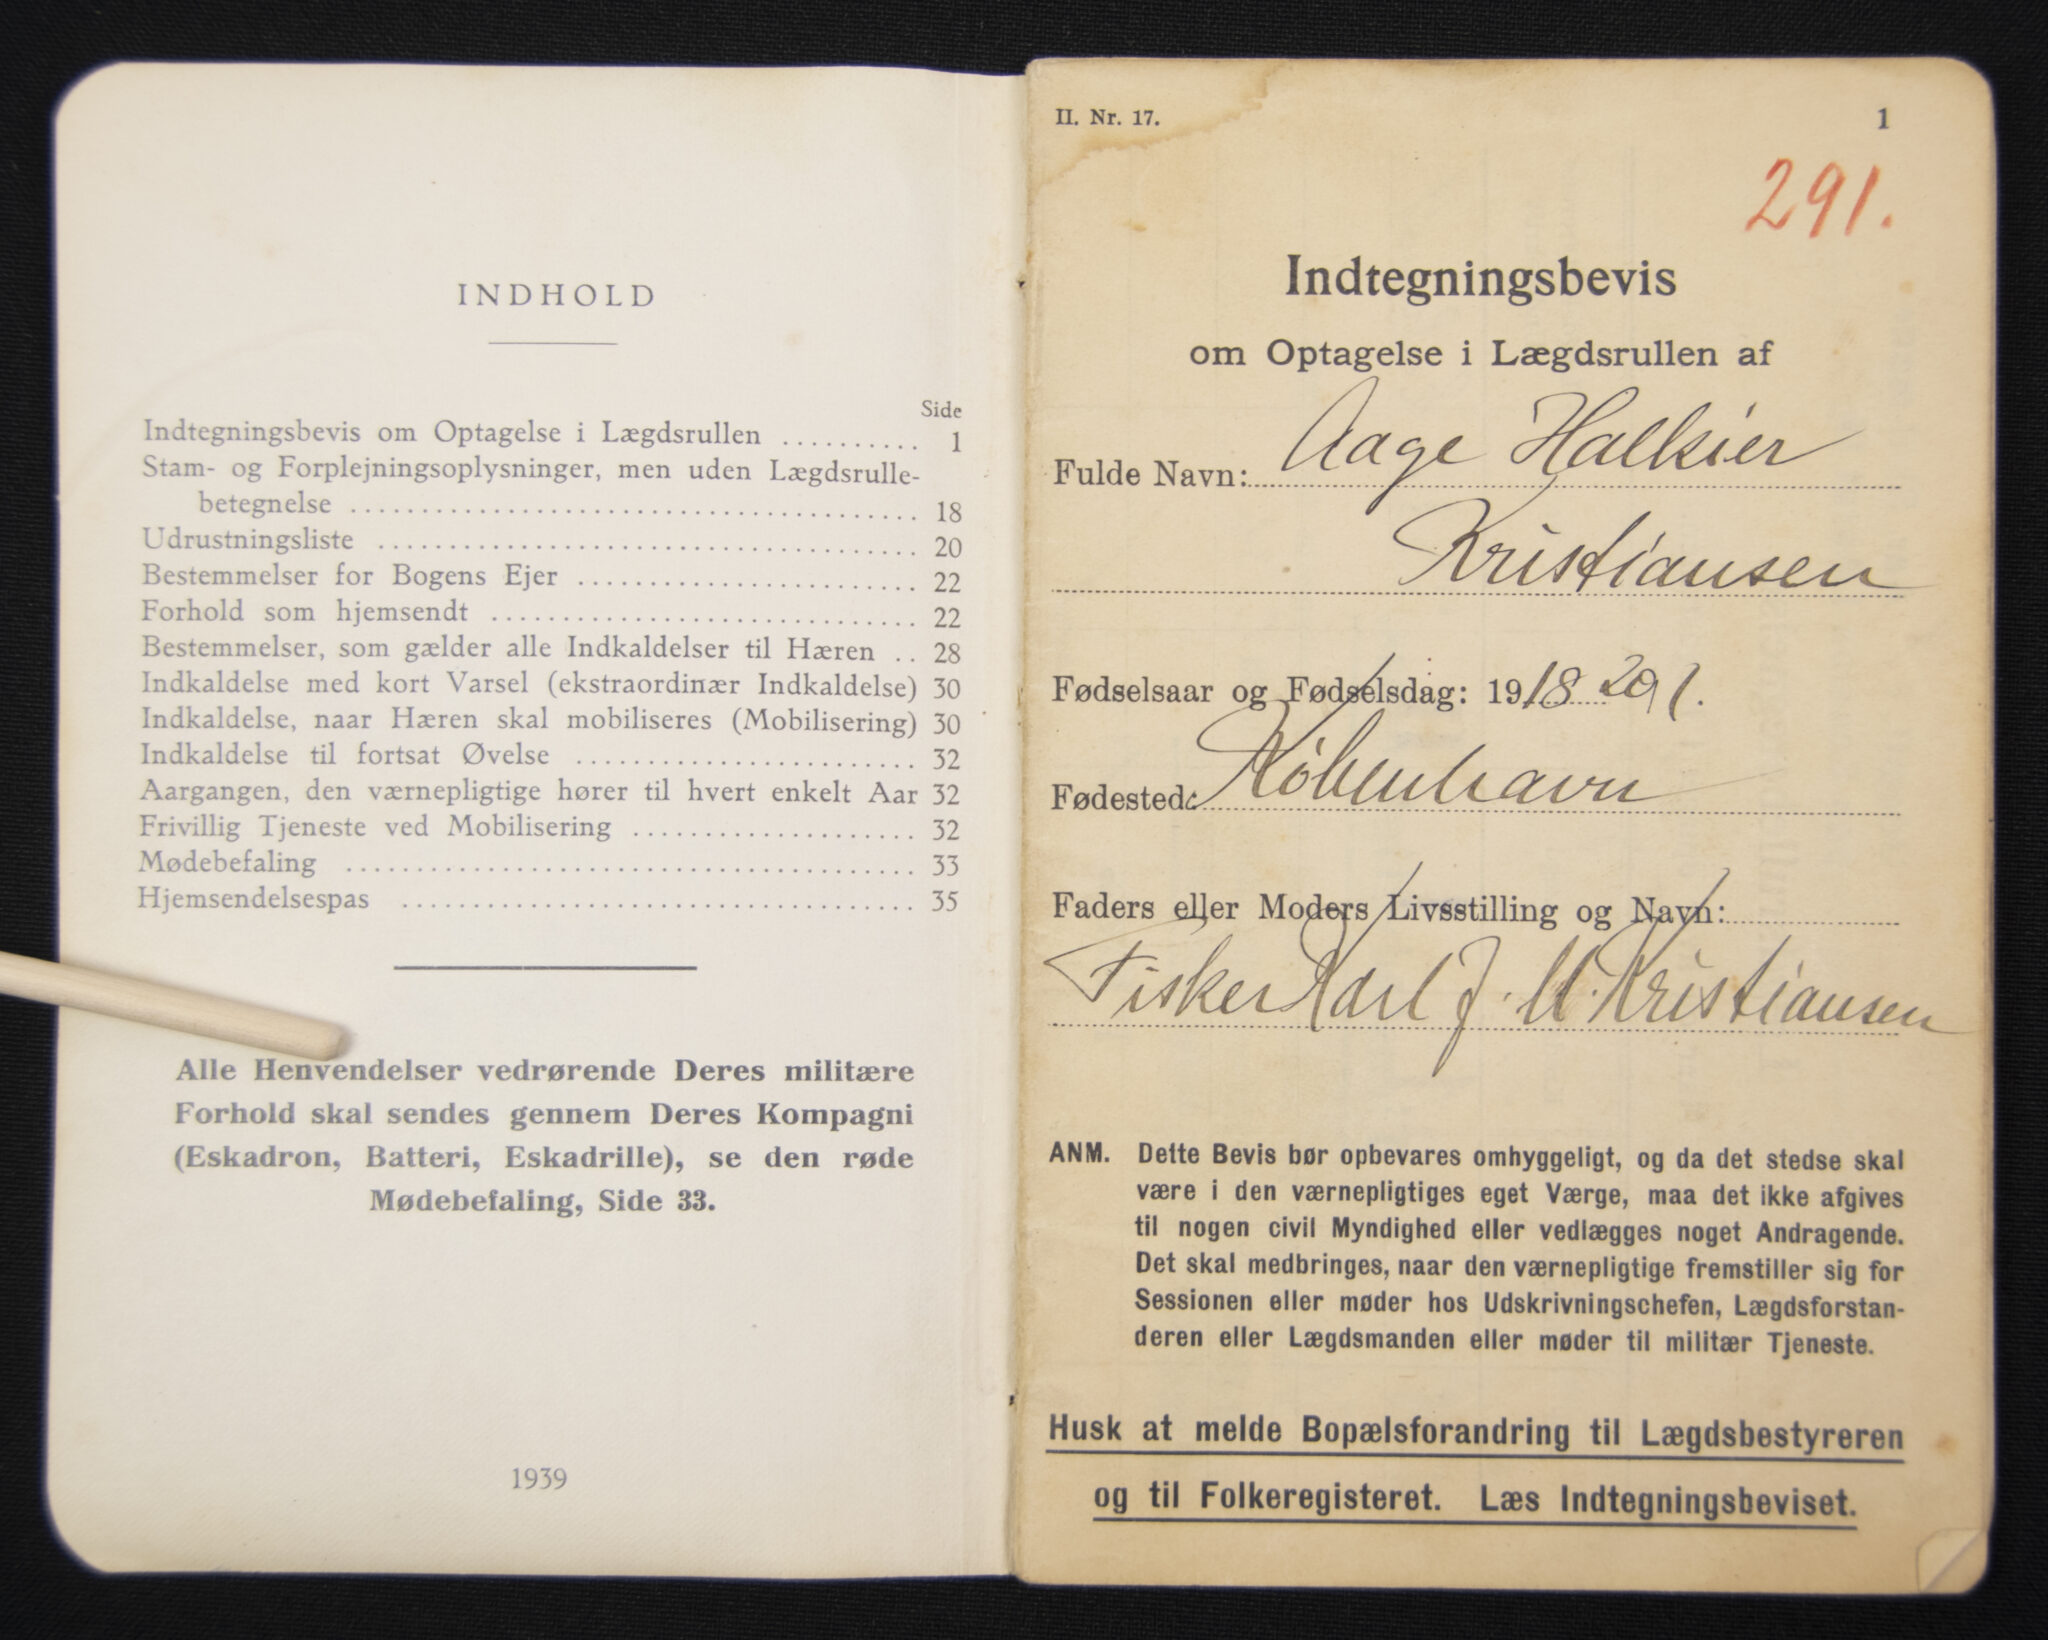 INDHOLD
Side
Indtegningsbevis om Optagelse i Lægdsrullen .......... 1
Stam- og Forplejningsoplysninger, men uden Lægdsrulle-
betegnelse ........................................ 18
Udrustningsliste ...................................... 20
Bestemmelser for Bogens Ejer ........................ 22
Forhold som hjemsendt .............................. 22
Bestemmelser, som gælder alle Indkaldelser til Hæren .. 28
Indkaldelse med kort Varsel (ekstraordinær Indkaldelse) 30
Indkaldelse, naar Hæren skal mobiliseres (Mobilisering) 30
Indkaldelse til fortsat Øvelse ........................ 32
Aargangen, den værnepligtige hører til hvert enkelt Aar 32
Frivillig Tjeneste ved Mobilisering .................... 32
Mødebefaling ........................................ 33
Hjemsendelsespas .................................... 35
Alle Henvendelser vedrørende Deres militære
Forhold skal sendes gennem Deres Kompagni
(Eskadron, Batteri, Eskadrille), se den røde
Mødebefaling, Side 33.
1939
II. Nr. 17.
1
291.
Indtegningsbevis
om Optagelse i Lægdsrullen af
Fulde Navn: Aage Halkier
Kristiansen
Fødselsaar og Fødselsdag: 1918 20/1.
Fødested: København
Faders eller Moders Livsstilling og Navn:
Fisker Karl J. M. Kristiansen
ANM. Dette Bevis bør opbevares omhyggeligt, og da det stedse skal
være i den værnepligtiges eget Værge, maa det ikke afgives
til nogen civil Myndighed eller vedlægges noget Andragende.
Det skal medbringes, naar den værnepligtige fremstiller sig for
Sessionen eller møder hos Udskrivningschefen, Lægdsforstan-
deren eller Lægdsmanden eller møder til militær Tjeneste.
Husk at melde Bopælsforandring til Lægdsbestyreren
og til Folkeregisteret. Læs Indtegningsbeviset.